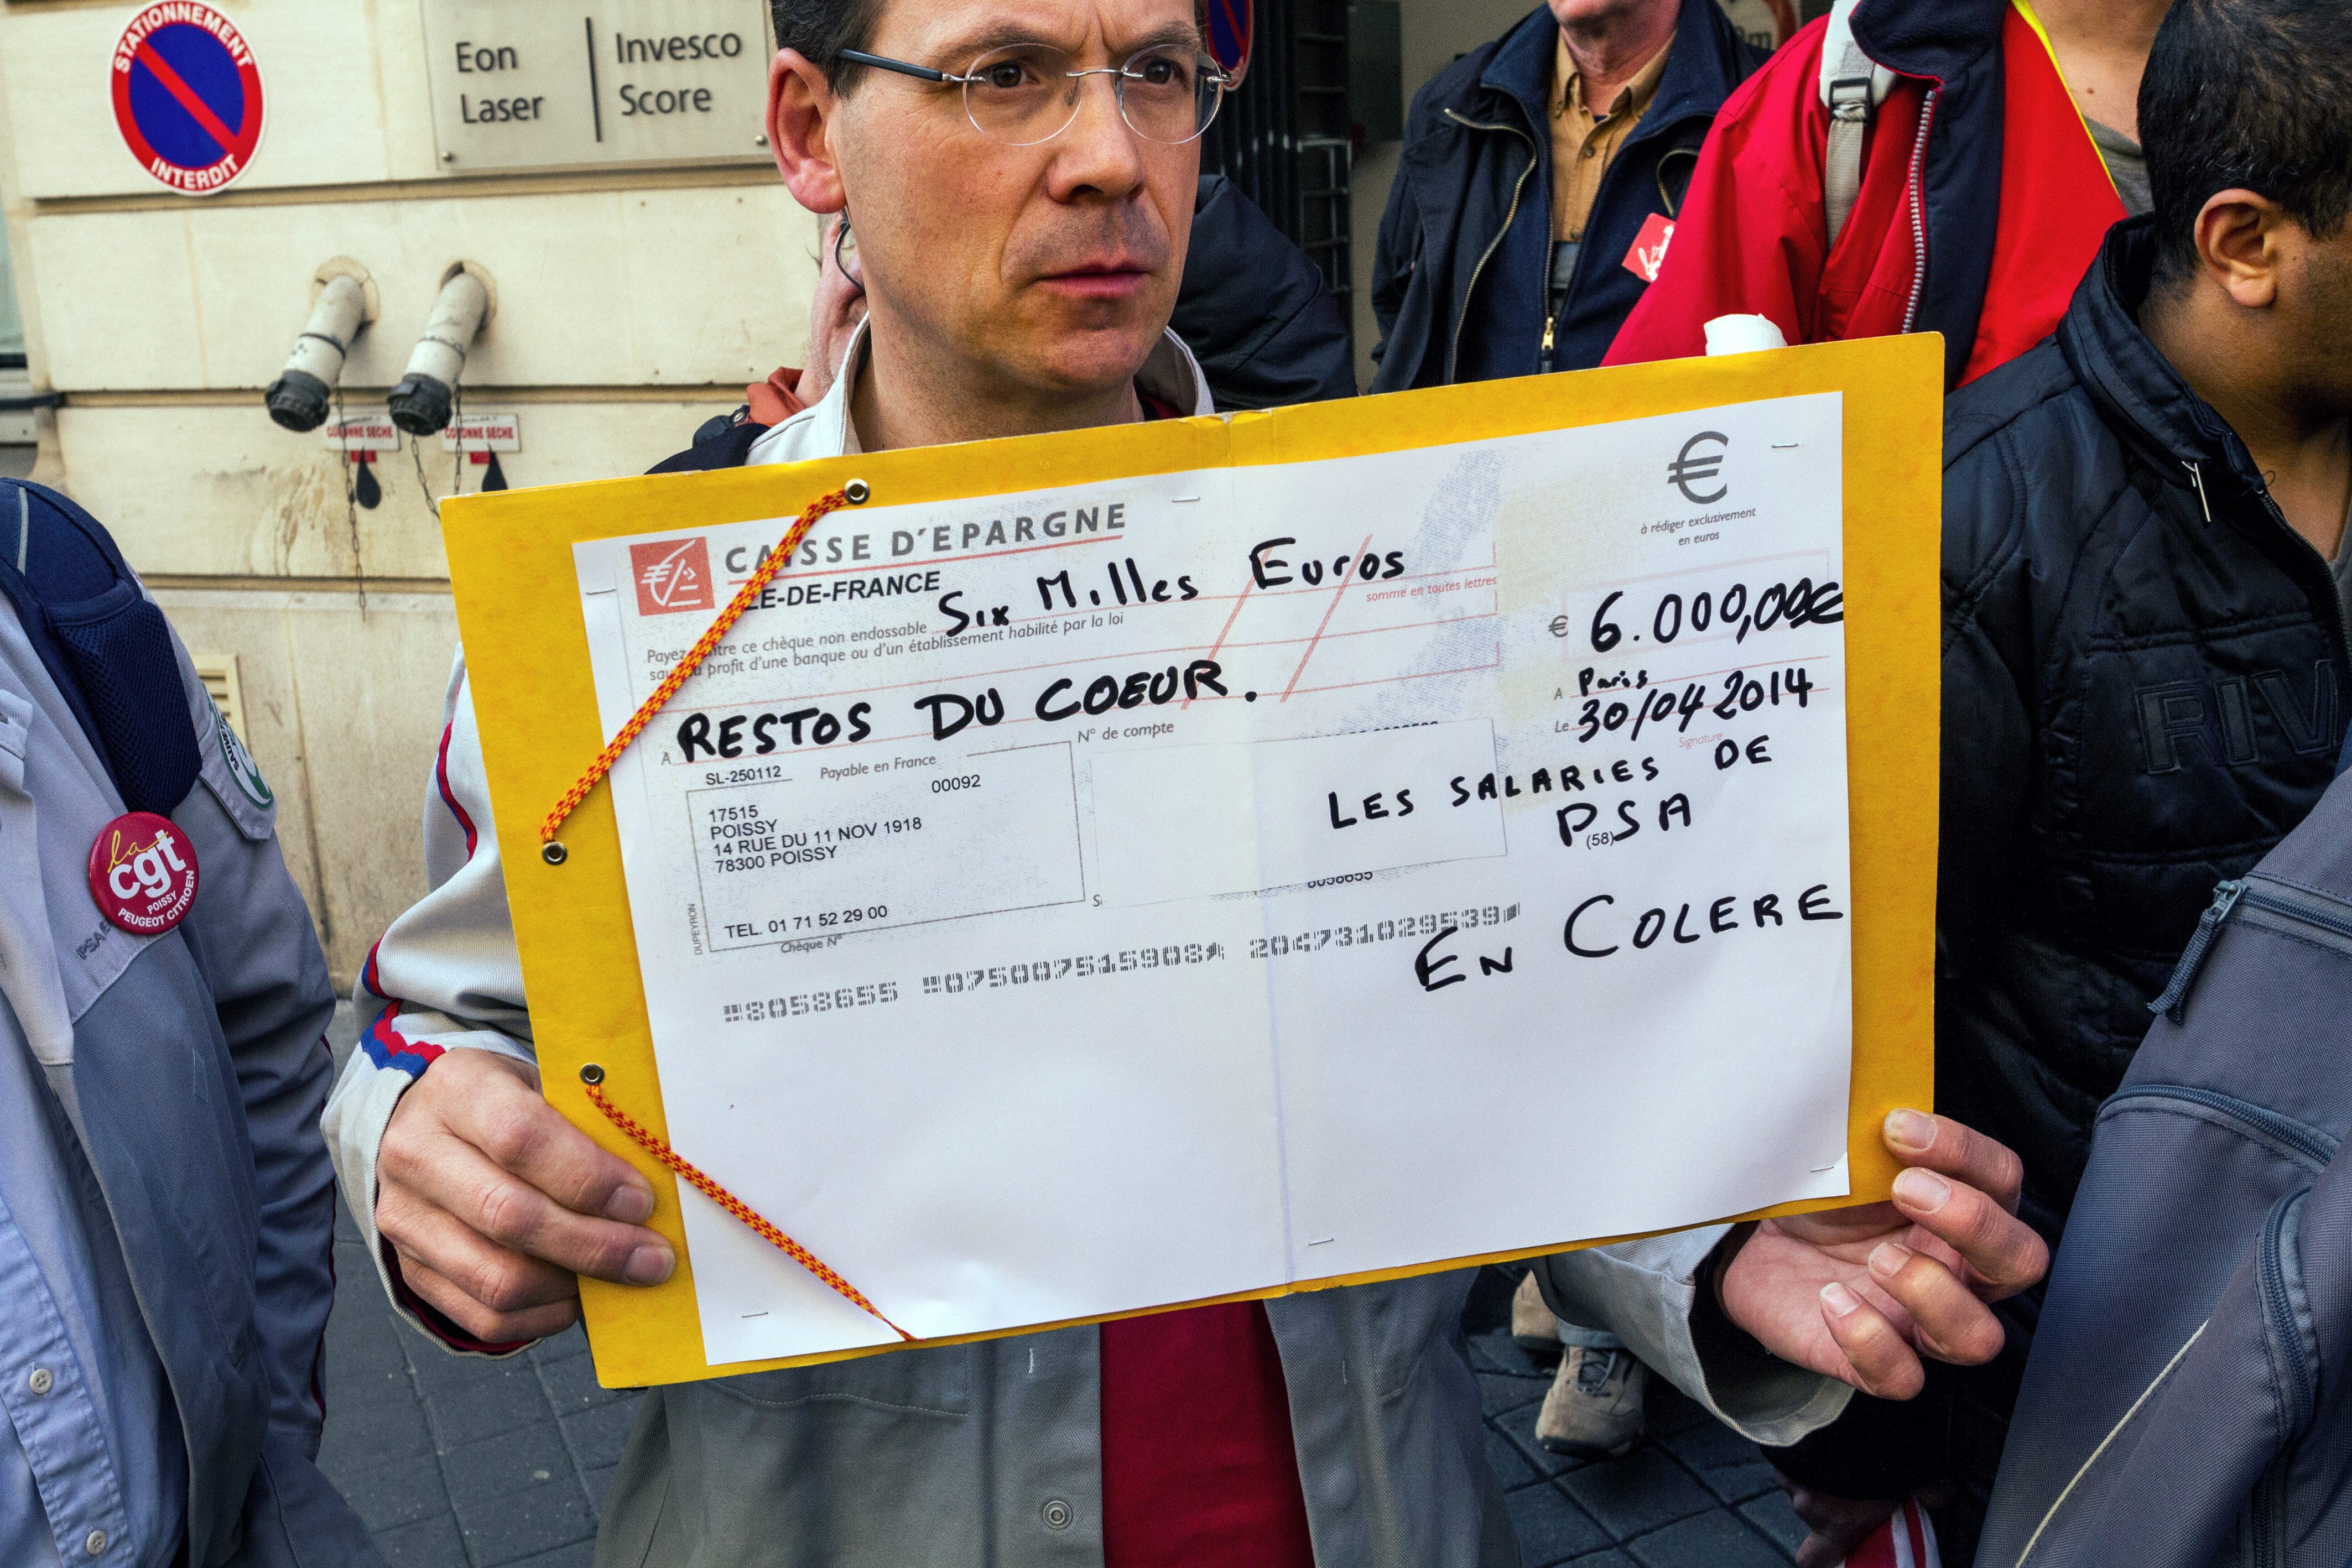 STATIONNEMENT
INTERDIT
Eon
Laser
Invesco
Score
COLONNE SECHE
COLONNE SECHE
CAISSE D'EPARGNE
ILE-DE-FRANCE
€
à rédiger exclusivement
en euros
Six Milles Euros
somme en toutes lettres
Payez contre ce chèque non endossable
sauf au profit d'une banque ou d'un établissement habilité par la loi
€ 6.000,00€
A RESTOS DU COEUR.
A Paris
Le 30/04 2014
Signature
SL-250112
Payable en France
00092
N° de compte
17515
POISSY
14 RUE DU 11 NOV 1918
78300 POISSY
TEL. 01 71 52 29 00
DUPEYRON
Chèque N°
LES SALARIES DE
PSA
(58)
EN COLERE
8058655
8058655 075007515908 204731029539
la
cgt
POISSY
PEUGEOT CITROEN
PSA
RIV